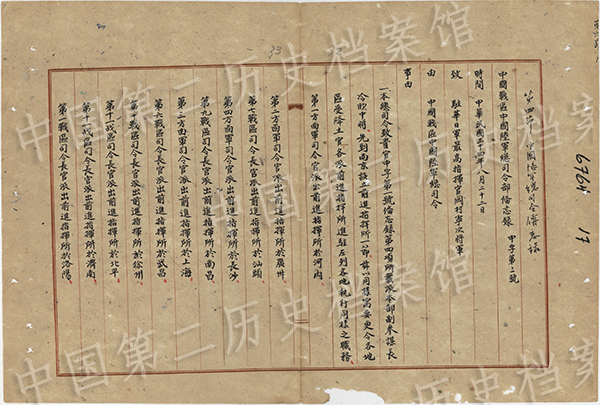 中國戰區中國陸軍總司令部備忘錄 中字第二號
時間 中華民國三十四年八月二十三日
致 駐華日軍最高指揮官岡村寧次將軍
由 中國戰區中國陸軍總司令
事由
一本總司令致貴官中字第一號備忘錄第四項所載派本部副參謀長
冷欣中將先到南京設立前進指揮所
區受降主官各派前進指揮所進駐左列各地執行同樣之職務
第一方面軍司令官派出前進指揮所於河內
第二方面軍司令官派出前進指揮所於廣州
第七戰區司令長官派出前進指揮所於汕頭
第四方面軍司令官派出前進指揮所於長沙
第九戰區司令長官派出前進指揮所於南昌
第三方面軍司令官派出前進指揮所於上海
第六戰區司令長官派出前進指揮所於武昌
第十戰區司令長官派出前進指揮所於徐州
第十一戰區司令長官派出前進指揮所於北平
第十一戰區司令長官派出前進指揮所於濟南
第一戰區司令長官派出前進指揮所於洛陽
33
6764
17
中国第二历史档案馆
中国第二历史档案馆
中国第二历史档案馆